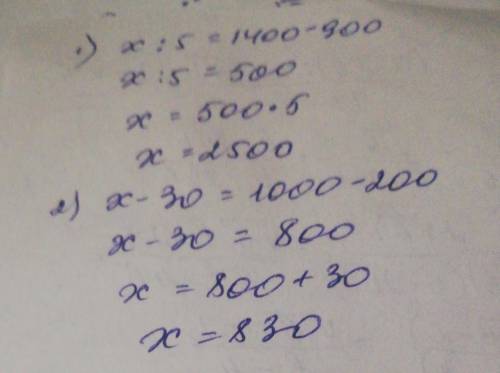 1) x : 5 = 1400 - 900
x : 5 = 500
x = 500 · 5
x = 2500
2) x - 30 = 1000 - 200
x - 30 = 800
x = 800 + 30
x = 830